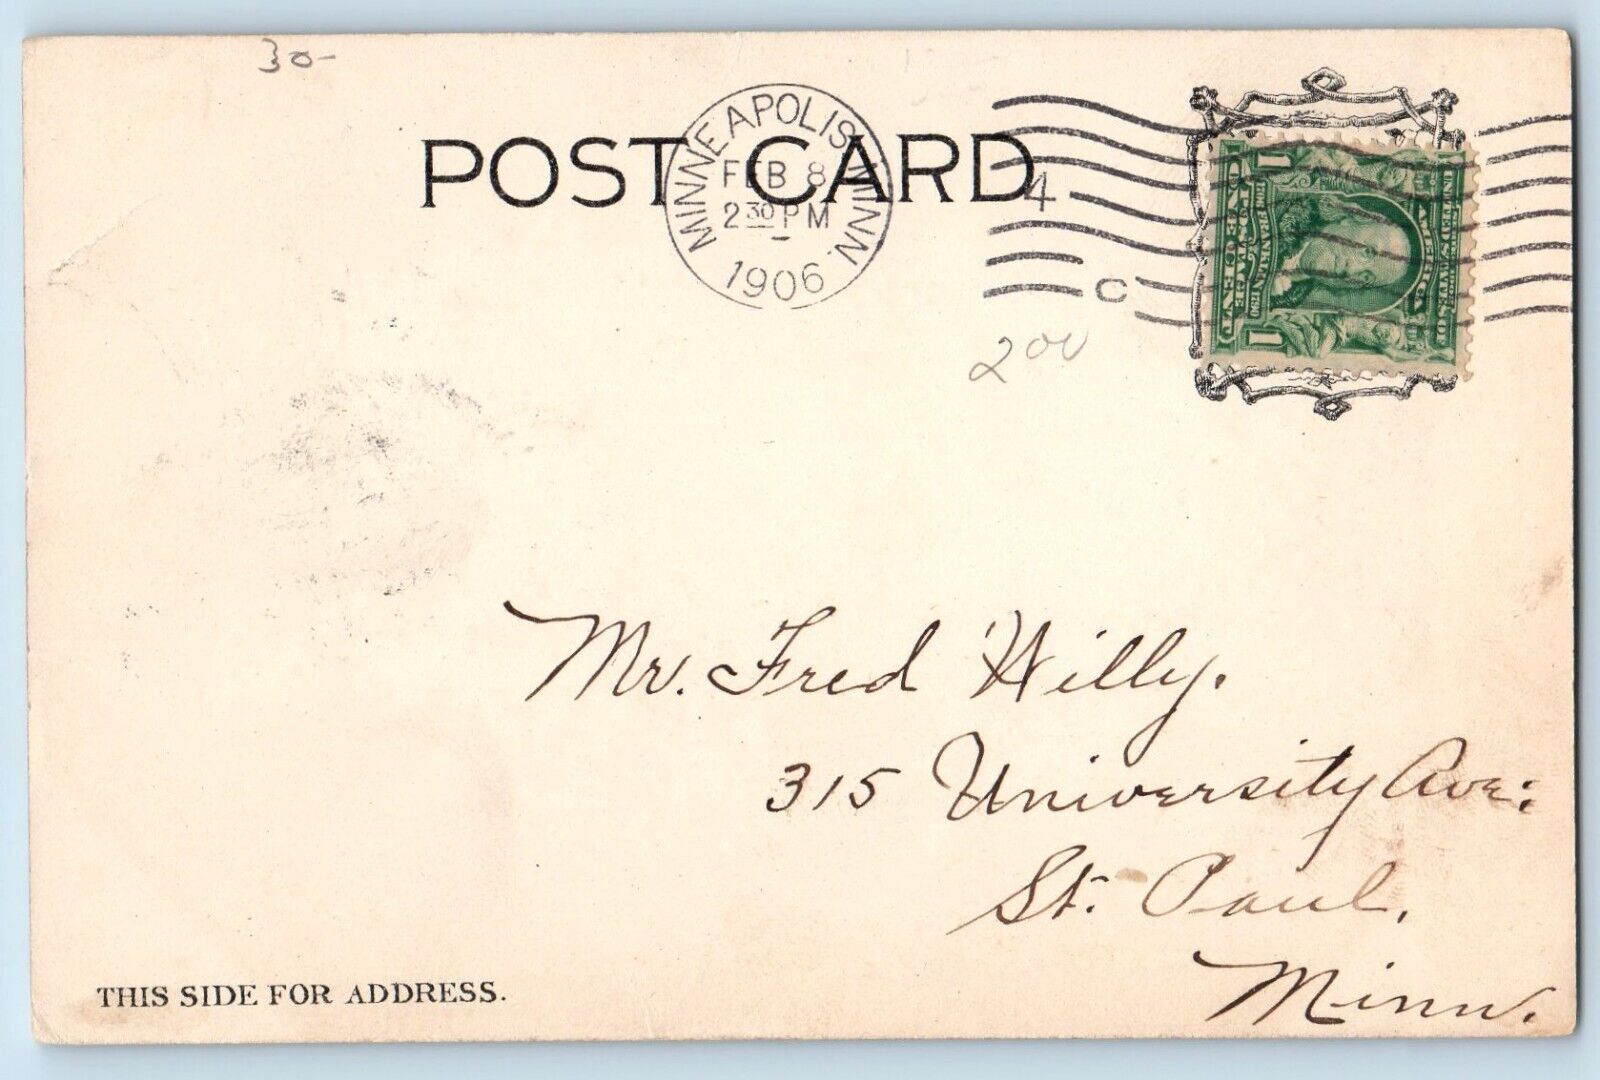 30-
POST CARD
MINNEAPOLIS, MINN.
FEB 8
2 30 PM
1906
4
C
2 00
Mr. Fred Hilly.
315 University Ave:
St. Paul,
Minn.
THIS SIDE FOR ADDRESS.